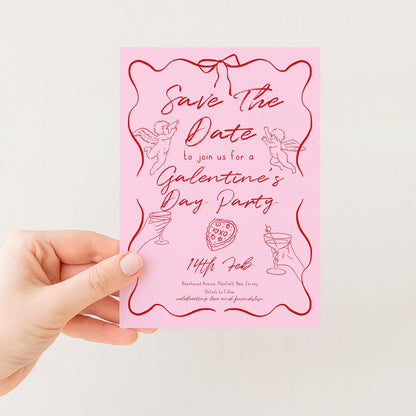 Save The
Date
to join us for a
Galentine's
Day Party
XOXO
14th Feb
Beechwood Avenue, Plainfield, New Jersey
Details to Follow
celebrating love and friendship